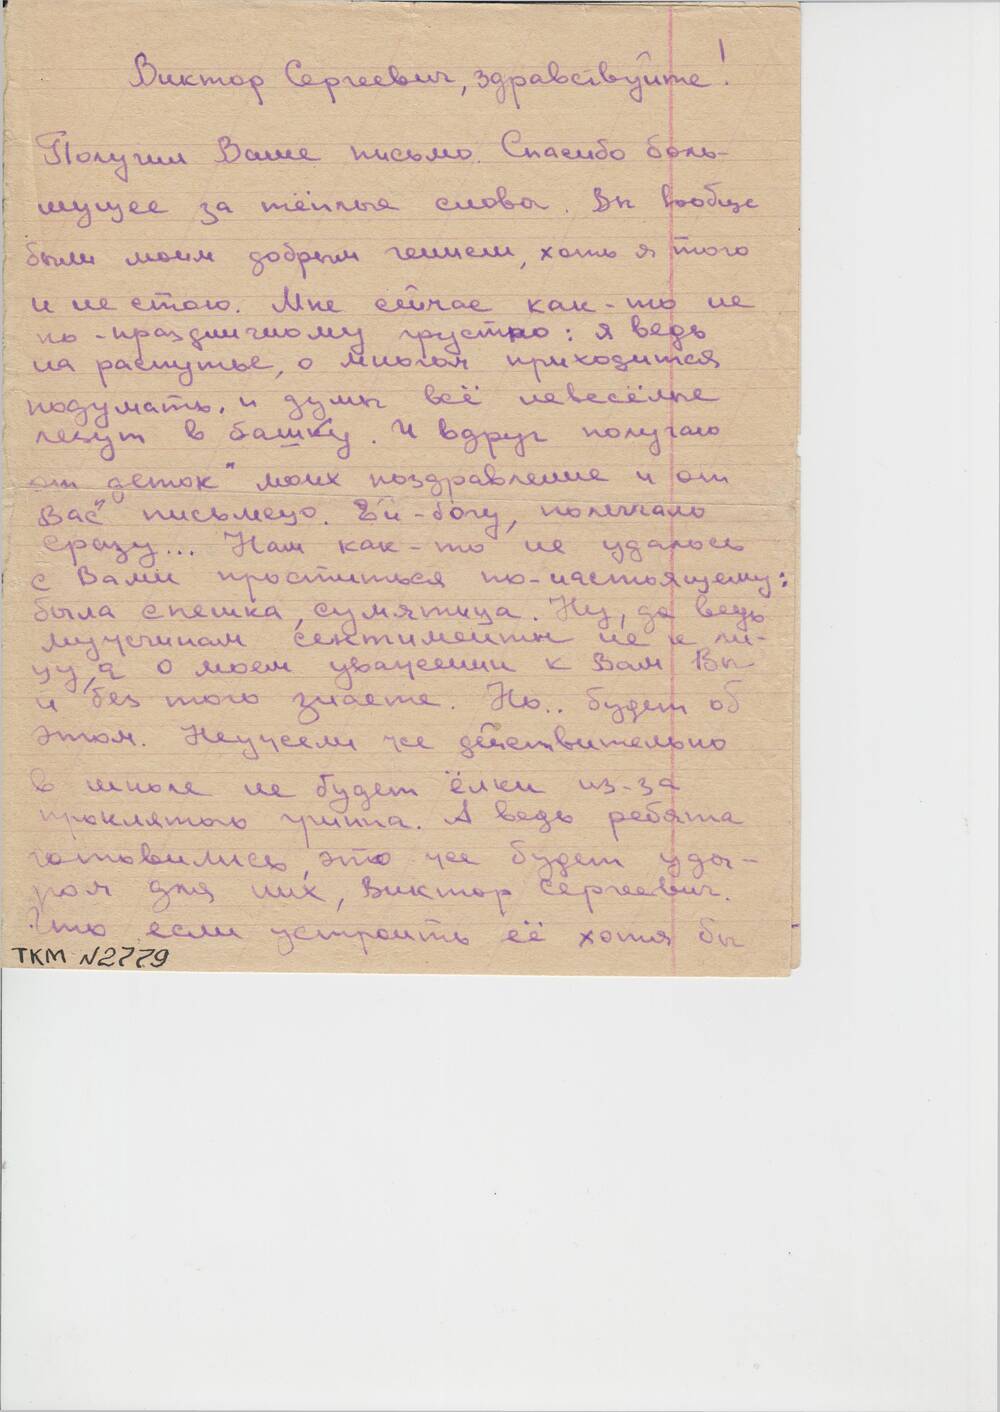 Виктор Сергеевич, здравствуйте!
Получил Ваше письмо. Спасибо боль-
шущее за тёплые слова. Вы вообще
были моим добрым гением, хоть я того
и не стою. Мне сейчас как-то не
по-праздничному грустно: я ведь
на распутье, о многом приходится
подумать, и думы всё невесёлые
лезут в башку. И вдруг получаю
от „деток" моих поздравление и от
Вас письмецо. Ей-богу, полегчало
сразу... Нам как-то не удалось
с Вами проститься по-настоящему:
была спешка, сумятица. Ну, да ведь
мужчинам сентименты не к ли-
цу, а о моем уважении к Вам Вы
и без того знаете. Но.. будет об
этом. Неужели же действительно
в школе не будет ёлки из-за
проклятого гриппа. А ведь ребята
готовились, это же будет уда-
ром для них, Виктор Сергеевич.
Что если устроить её хотя бы
ТКМ №2779